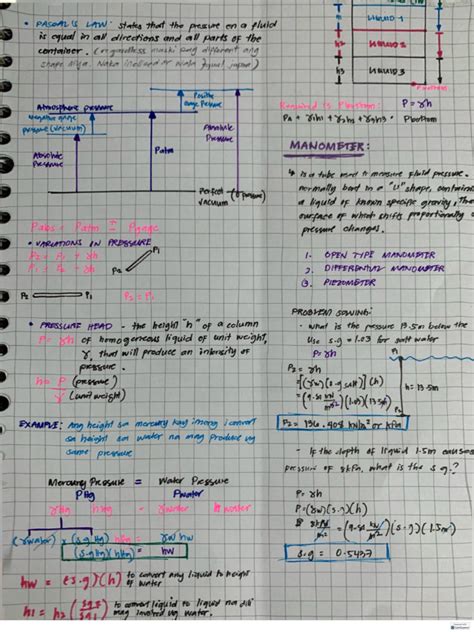 • PASCAL'S LAW: states that the pressure on a fluid
is equal in all directions and all parts of the
container. (regardless maski pag different ang
shape niya. Naka inclined or wala equal japon)
Atmosphere pressure
Negative gage
pressure (vacuum)
Positive
gage Pressure
Absolute
Pressure
Patm
Absolute
Pressure
Perfect
vacuum
(0 pressure)
Pabs = Patm ± Pgage
• VARIATIONS IN PRESSURE
P2 = P1 + γh
P1 = P2 + γh
P1
P2
P2
P1
P2=P1
• PRESSURE HEAD - the height "h" of a column
P = γh of homogeneous liquid of unit weight,
γ, that will produce an intensity of
pressure.
h = P (pressure)
γ (unit weight)
EXAMPLE: Ang height sa mercury kay imong i convert
sa height sa water na mag produce ug
same pressure
Mercury Pressure = Water Pressure
PHg = Pwater
γHg hHg = γwater hwater
(γwater) x (s.g Hg) hHg = γw hw
(s.gHg)(hHg) = hw
hw = (s.g)(h) to convert any liquid to height
of water
h1 = h2 to convert liquid to liquid na dili
mag involved ug water.
LIQUID 1
h2
LIQUID 2
h3
LIQUID 3
Pbottom
Required is Pbottom: P = γh
PA + γ1h1 + γ2h2 + γ3h3 = Pbottom
MANOMETER:
↳ is a tube used to measure fluid pressure.
normally bent in a "U" shape, containing
a liquid of known specific gravity, The
surface of which shifts proportionally
pressure changes.
1. OPEN TYPE MANOMETER
2. DIFFERENTIAL MANOMETER
3. PIEZOMETER
PROBLEM SOLVING:
- What is the pressure 13.5m below the
Use s.g = 1.03 for salt water
P = γh
P1
P2 = γh
=[(γw)(s.g salt)](h)
h = 13.5m
=(9.81 kN/m³)(1.03)(13.5m)
P2
P2 = 136.408 kN/m² or kPa
- If the depth of liquid 1.5m causes
pressure of 8kPa, what is the s.g.?
P = γh
P = (γw)(s.g)(h)
8 = (9.81 kN/m³)(s.g)(1.5m)
s.g = 0.5437